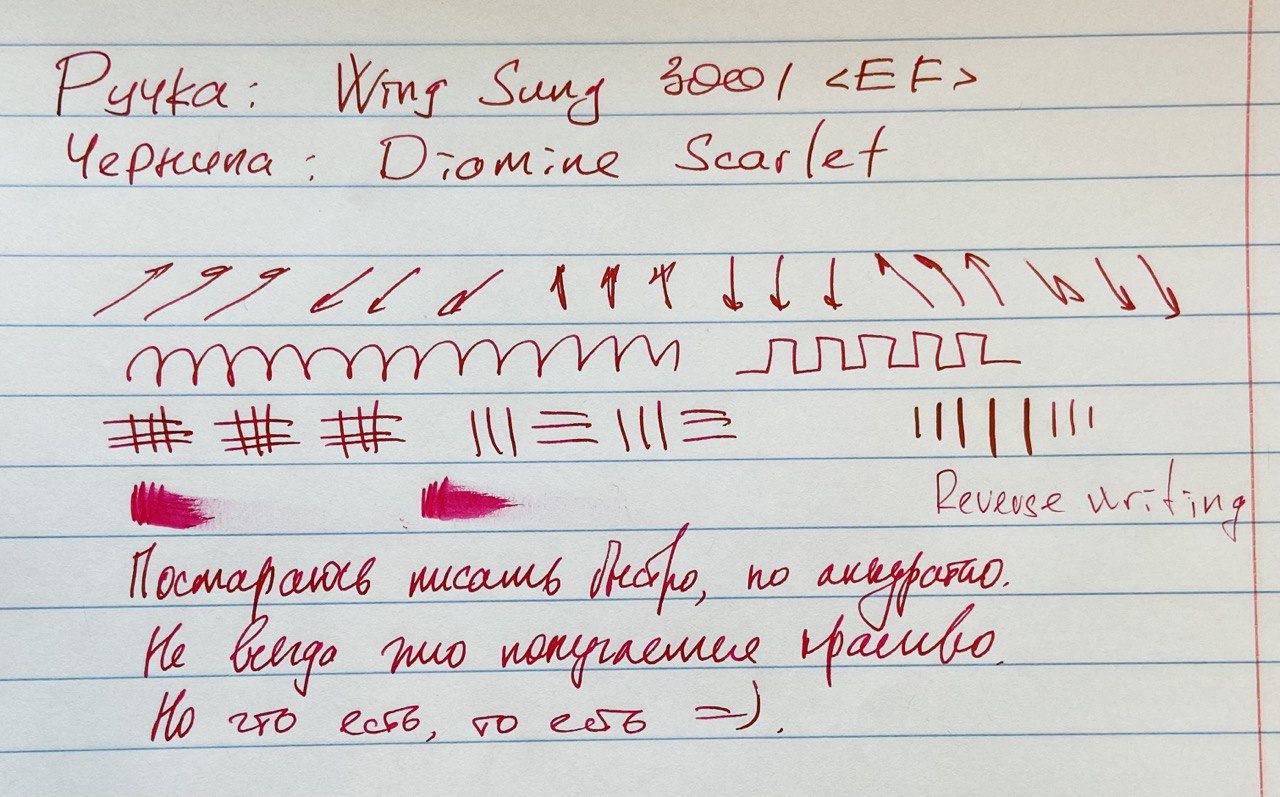 Ручка: Wing Sung 3001 <EF>
Чернила: Diamine Scarlet
Reverse writing
Постараюсь писать быстро, но аккуратно.
Не всегда это получается красиво.
Но что есть, то есть =).